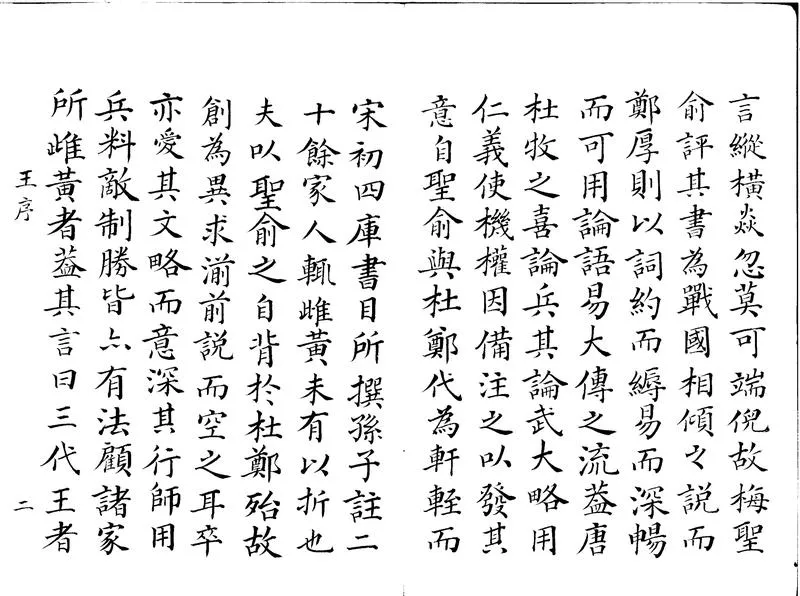 言縱橫焱忽莫可端倪故梅聖
俞評其書為戰國相傾之説而
鄭厚則以詞約而縟易而深暢
而可用論語易大傳之流葢唐
杜牧之喜論兵其論武大略用
仁義使機權因備注之以發其
意自聖俞與杜鄭代為軒輊而
宋初四庫書目所撰孫子註二
十餘家人輒雌黃未有以折也
夫以聖俞之自背於杜鄭殆故
創為異求湔前説而空之耳卒
亦愛其文略而意深其行師用
兵料敵制勝皆亦有法顧諸家
所雌黃者葢其言曰三代王者
王序
二